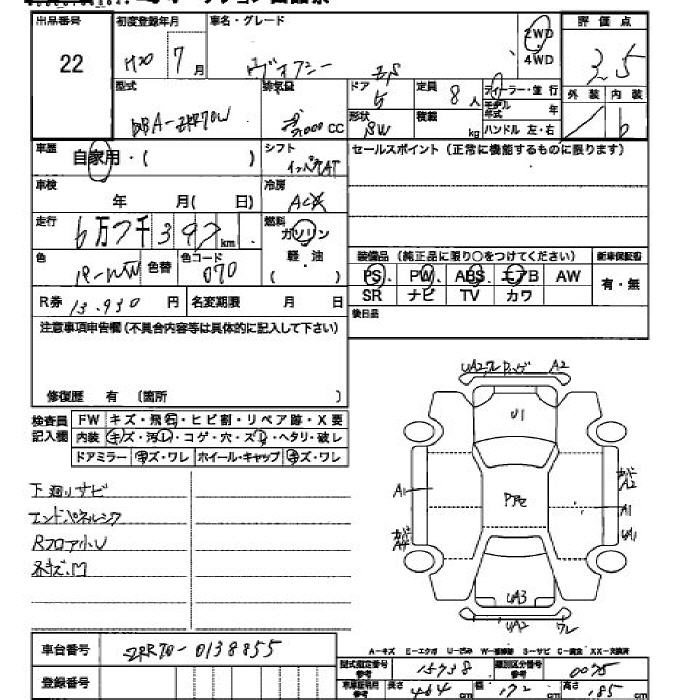 出品番号
22
初度登録年月
H20 7月
車名・グレード
2WD
4WD
評価点
3.5
外装 内装
型式
DBA-ZRR70W
排気量
2,000 CC
ドア
5
形状
SW
定員
8人
積載
kg
ディーラー・並行
モデル年式 年
ハンドル 左・右
車歴
自家用・( )
シフト
インパネAT
セールスポイント(正常に機能するものに限ります)
車検
年 月( 日)
冷房
走行
6万7千397km
燃料
ガソリン
軽・油
( )
色
パールW
色替
色コード
070
装備品(純正品に限り○をつけてください)
新車保証書
PS PW ABS エアB AW
SR ナビ TV カワ
有・無
R券 13.930 円
名変期限 月 日
後日品
注意事項申告欄(不具合内容等は具体的に記入して下さい)
修復歴 有 (箇所 )
検査員記入欄
FW キズ・飛石・ヒビ割・リペア跡・X要
内装 キズ・汚レ・コゲ・穴・スレ・ヘタリ・破レ
ドアミラー キズ・ワレ ホイール・キャップ キズ・ワレ
下廻りサビ
エンドパネルシワ
Rフロア小U
A2
U1
A1
A2
A1
UA1
UA3
UA2 ワレ
A-キズ E-エクボ U-凹ミ W-補修跡 S-サビ C-腐食 XX-交換済
車台番号
ZRR70-0138855
登録番号
型式指定番号 参考
15738
類別区分番号 参考
0075
車庫証明用 参考
長さ 464 cm
幅 172 cm
高さ .185 cm